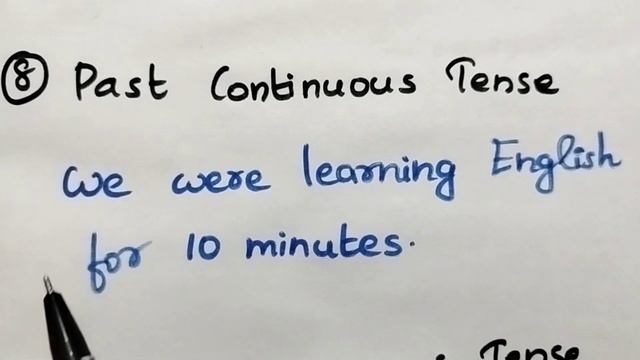 ⑧ Past Continuous Tense
We were learning English
for 10 minutes.
Tense